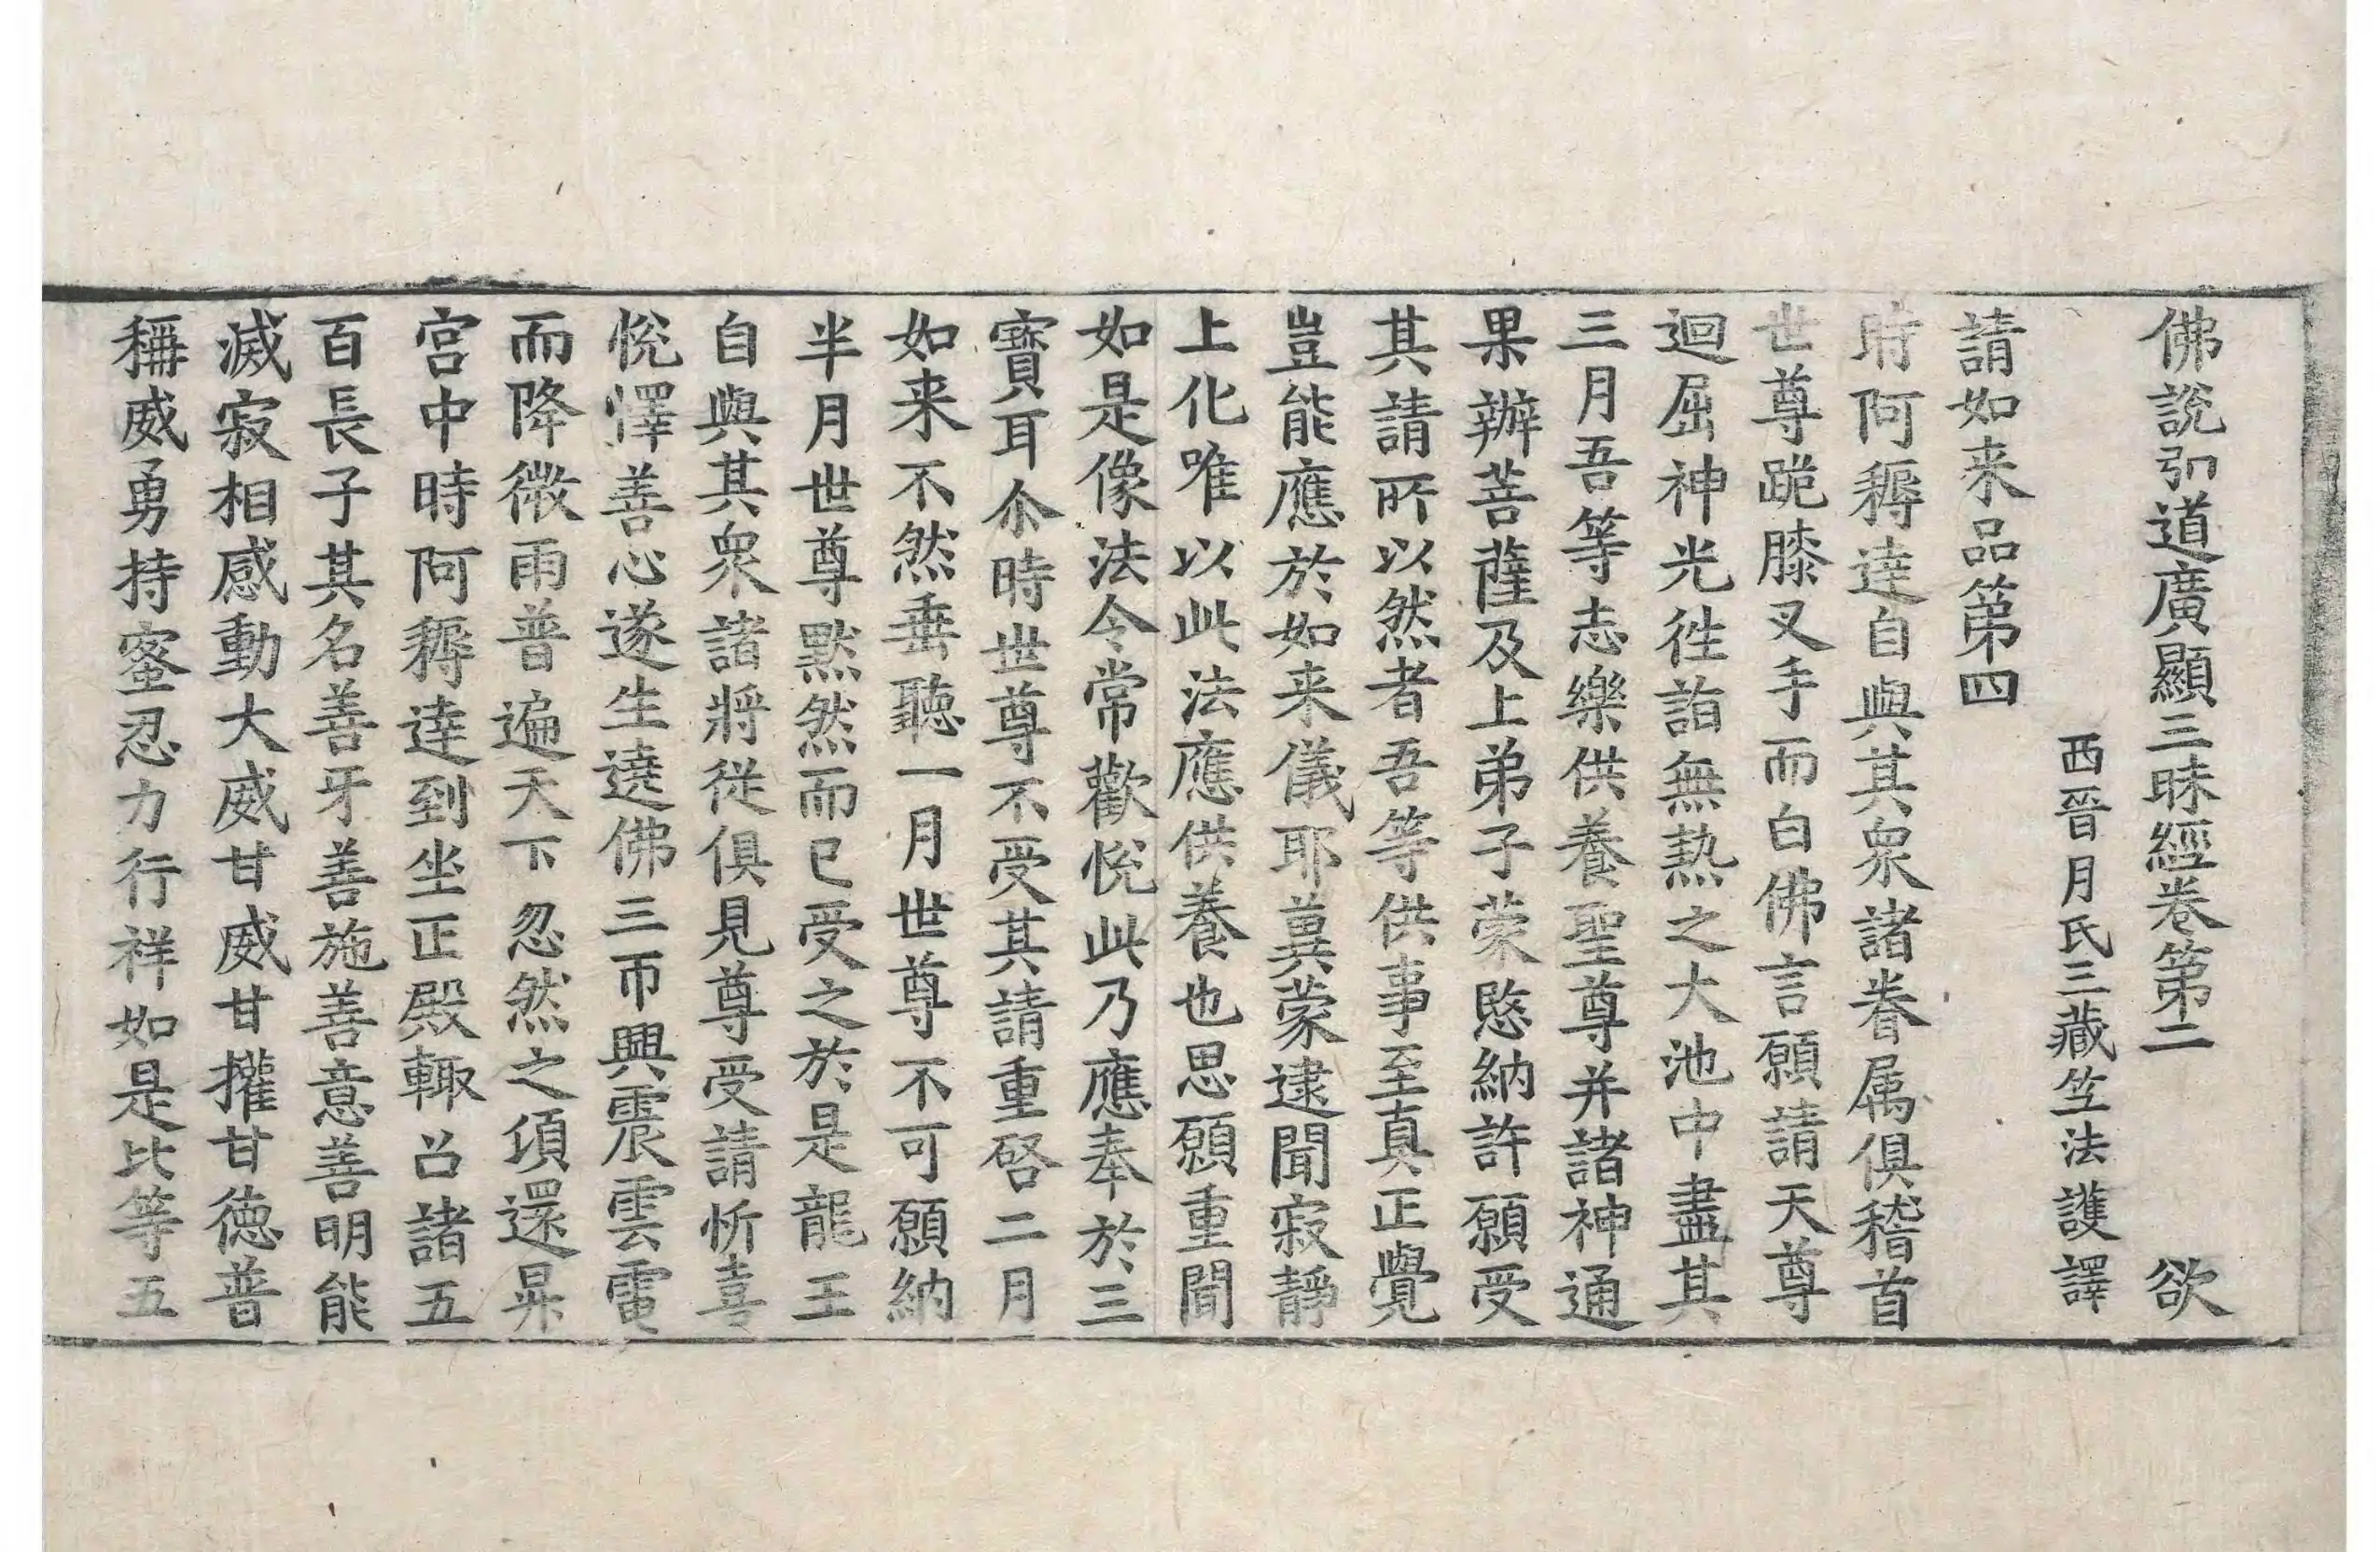 佛說弘道廣顯三昧經卷第二 欲
西晉月氏三藏竺法護譯
請如来品第四
時阿耨達自與其衆諸眷属俱稽首
世尊跪膝叉手而白佛言願請天尊
迴屈神光徃詣無熱之大池中盡其
三月吾等志樂供養聖尊并諸神通
果辦菩薩及上弟子蒙愍納許願受
其請所以然者吾等供事至真正覺
豈能應於如来儀耶冀蒙逮聞寂静
上化唯以此法應供養也思願重聞
如是像法令常歡悅此乃應奉於三
寳耳尒時世尊不受其請重啓二月
如来不然垂聽一月世尊不可願納
半月世尊默然而已受之於是龍王
自與其衆諸將従俱見尊受請忻喜
悅懌善心遂生遶佛三帀興震雲電
而降微雨普遍天下忽然之頃還昇
宫中時阿耨達到坐正殿輙召諸五
百長子其名善牙善施善意善明能
滅寂相感動大威甘威甘權甘德普
稱威勇持宻忍力行祥如是比等五